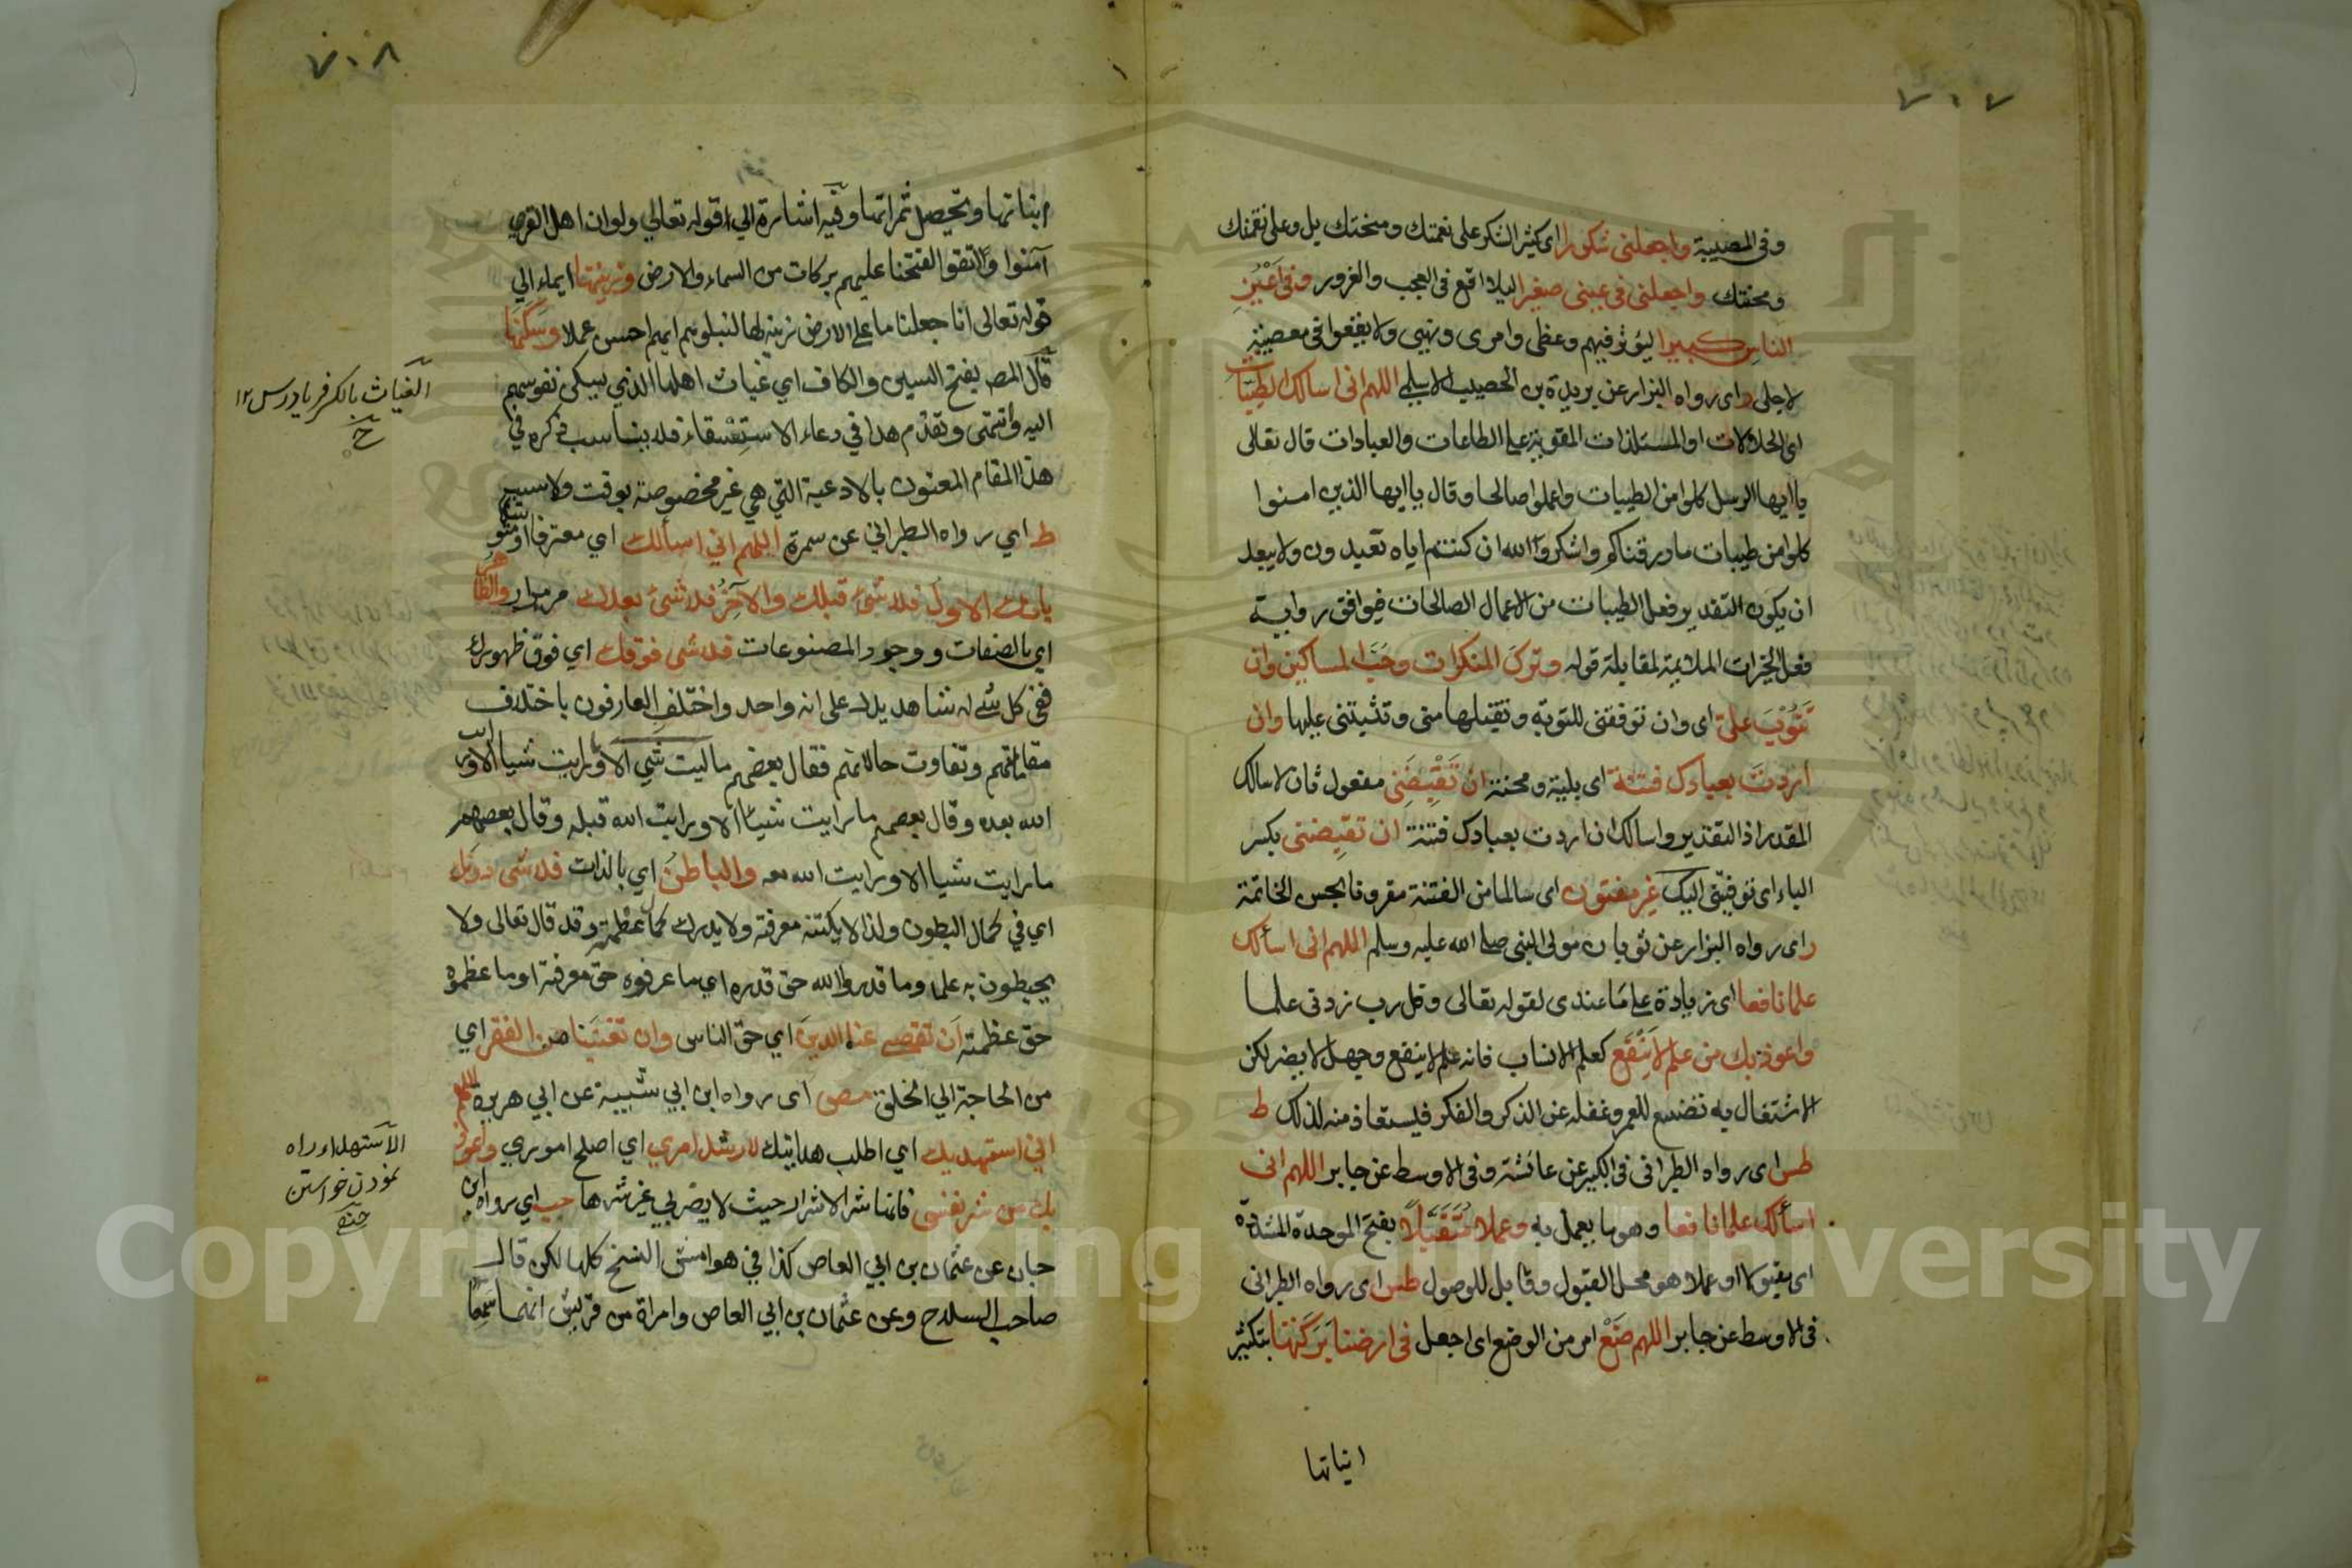 ٧٠٧
وفى المصيبة واجعلنى شكورا اى كثير الشكر على نعمتك ومنحتك بل وعلى نقمتك
ومحنتك واجعلنى فى عينى صغيرا ليلا اقع فى العجب والغرور وفى اَعْيُنِ
الناسِ كبيرا ليؤثر فيهم وعظى وامرى ونهيى ولا يقعوا فى معصيتة
لاجلى ر اى رواه البزار عن بريدة بن الحصيب الاسلمى اللهم انى اسالك الطيّبات
اى الحلالات او المستلذات المقوية على الطاعات والعبادات قال تعالى
يا ايها الرسل كلوا من الطيبات واعملوا صالحا وقال يا ايها الذين امنوا
كلوا من طيبات ما رزقناكم واشكروا الله ان كنتم اياه تعبدون ولا يبعد
ان يكون التقدير فعل الطيبات من الاعمال الصالحات فيوافق رواية
فعل الخيرات الملائمة لمقابلة قوله وتركَ المنكرات وحُبَّ المساكين وان
تَتُوْبَ علىَّ اى وان توفقنى للتوبة وتقبلها منى وتثبتنى عليها وان
اردتَ بعبادك فتنة اى بلية ومحنة ان تَقْبِضَنِى مفعول ثان لاسالك
المقدر اذ التقدير واسالك ان اردت بعبادك فتنة ان تقبِضنى بكسر
الباء اى توفينى اليك غير مفتون اى سالما من الفتنة مقرونا بحسن الخاتمة
ر اى رواه البزار عن ثوبان مولى النبى صلى الله عليه وسلم اللهم انى اسألك
علما نافعا اى زيادة على مَا عندى لقوله تعالى وقل رب زدنى علما
واعوذ بك من علم لا يَنْفَع كعلم الانساب فانه علم لا ينفع وجهل لا يضر لكن
الاشتغال به تضييع للعمر وغفلة عن الذكر والفكر فليستعاذ منه لذلك ط
طس اى رواه الطبرانى فى الكبير عن عائشة وفى الاوسط عن جابر اللهم انى
اسألك علما نافعا وهو ما يعمل به وعملا مُتَقَبَّلًا بفتح الموحدة المشددة
اى مقبولا او عملا هو محل القبول وقابل للوصول طس اى رواه الطبرانى
فى الاوسط عن جابر اللهم ضَعْ امر من الوضع اى اجعل فى ارضنا بَرَكَتَها بتكثير
انباتها
٧٠٨
انباتها وتحصيل ثمراتها وفيه اشارة الي قوله تعالي ولو ان اهل القري
آمنوا واتقوا لفتحنا عليهم بركات من السماء والارض وزينتها ايماء الي
قوله تعالى انا جعلنا ما على الارض زينة لها لنبلوهم ايهم احسن عملا وسَكَنَها
قال المص بفتح السين والكاف اي غياث اهلها الذي يسكن نفوسهم
اليه وانتهى وتقدم هذا في دعاء الاستِسْقاء فلا يناسب ذكره في
هذا المقام المعنون بالادعية التي هي غير مخصوصة بوقت ولا سبب
ط اي رواه الطبراني عن سمرة اللهم اني اسألك اي معترفا او متوسّلا
بانك الاول فلا شىء قبلك والآخِرُ فلا شىء بعدك والظاهر
اي بالصفات ووجود المصنوعات فلا شى فوقك اي فوق ظهورك
ففي كل شئ له شاهد يدل على انه واحد واختلف العارفون باختلاف
مقاماتهم وتفاوت حالاتهم فقال بعضهم ما رايت شيا الا ورايت
الله بعده وقال بعضهم ما رايت شيئا الا ورايت الله قبله وقال بعضهم
ما رايت شيا الا ورايت الله معه والباطنُ اي بالذات فلا شى دونك
اي في كمال البطون ولذا لا يكتنه معرفته ولا يدرك كمال عظمته وقد قال تعالى ولا
يحيطون به علما وما قدروا الله حق قدره اي ما عرفوه حق معرفته او ما عظموه
حق عظمته اَن تقضى عنا الدينَ اي حق الناس وان تغنيَنا من الفقر اي
من الحاجة الي الخلق مص اى رواه ابن ابي شيبة عن ابي هريرة اللهم
اني استهديك اي اطلب هدايتك لارشد امري اي اصلح اموري واعوذ
بك من شر نفسى فانها شر الاشرار حيث لا يضر بي غير شرها حب اي رواه ابن
حبان عن عثمان بن ابي العاص كذا في هوامش النسخ كلها لكن قال
صاحب السلاح وعن عثمان بن ابي العاص وامراة من قريش انهما سَمِعَا
الغياث بالكسر فرياد رس ١٢
الاستهداء راه
نمودن خواستن